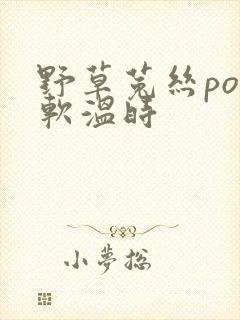 野草菟絲po
軟溫時
小夢搃